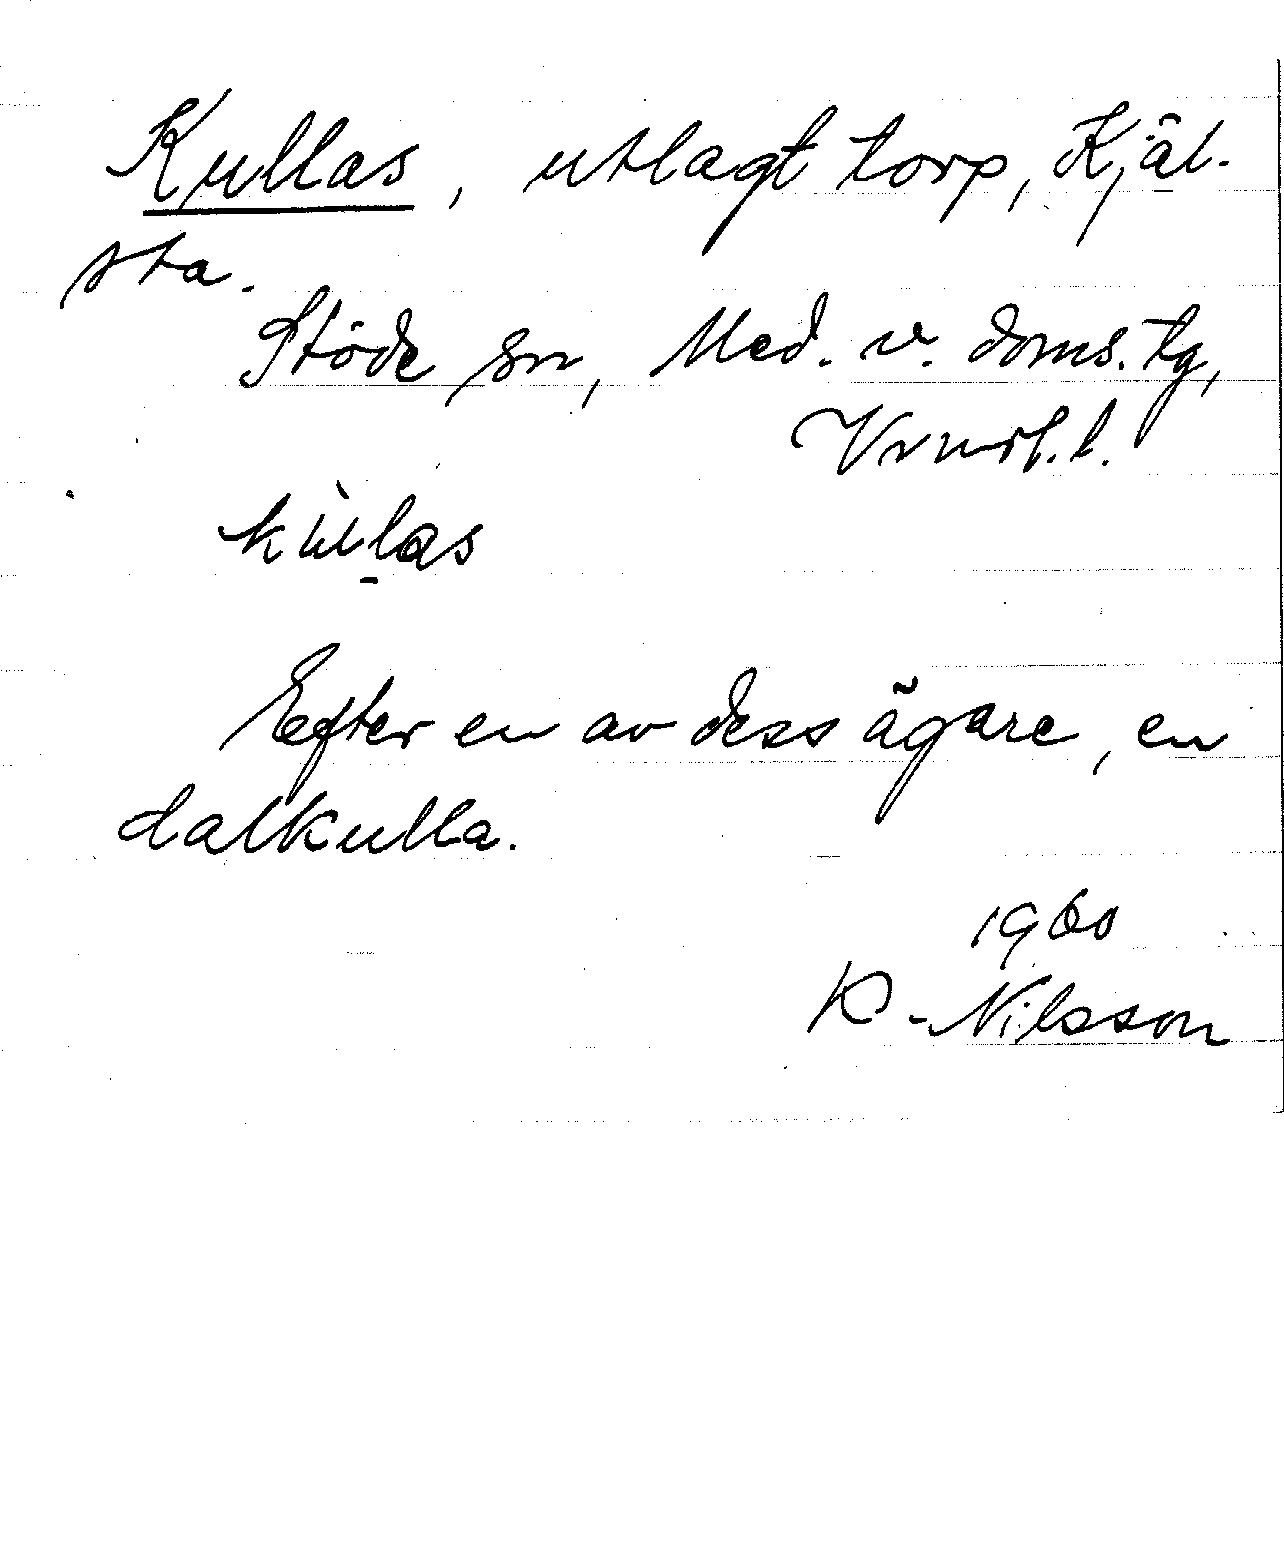 Kullas, utlagt torp, Kjäl-
sta.
Stöde sn, Med. v. doms. tg,
Vrnrl. l.
kùlas
Efter en av dess ägare, en
dalkulla.
1960
K-Nilsson